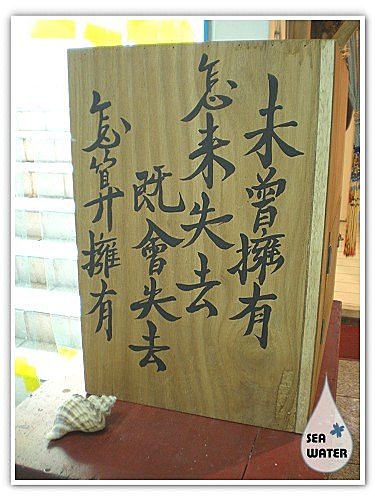 未曾擁有
怎来失去
既會失去
怎算擁有
SEA
WATER